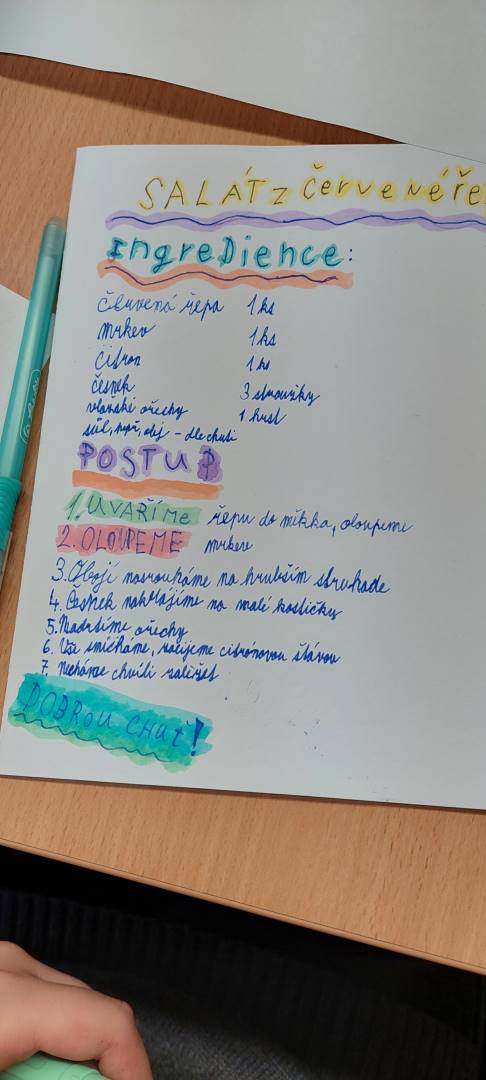 SALÁT z červené ře
IngreDience:
Červená řepa 1 ks
Mrkev 1 ks
Citron 1 ks
Česnek 3 stroužky
vlašské ořechy 1 hrst
sůl, pepř, olej - dle chuti
POSTUP
1. UVAŘÍME řepu do měkka, oloupeme
2. OLOUPEME mrkev
3. Obojí nastrouháme na hrubším struhadle
4. Česnek nakrájíme na malé kostičky
5. Nadrtíme ořechy
6. Vše smícháme, zalijeme citrónovou šťávou
7. Necháme chvíli zaležet
DOBROU CHUŤ!